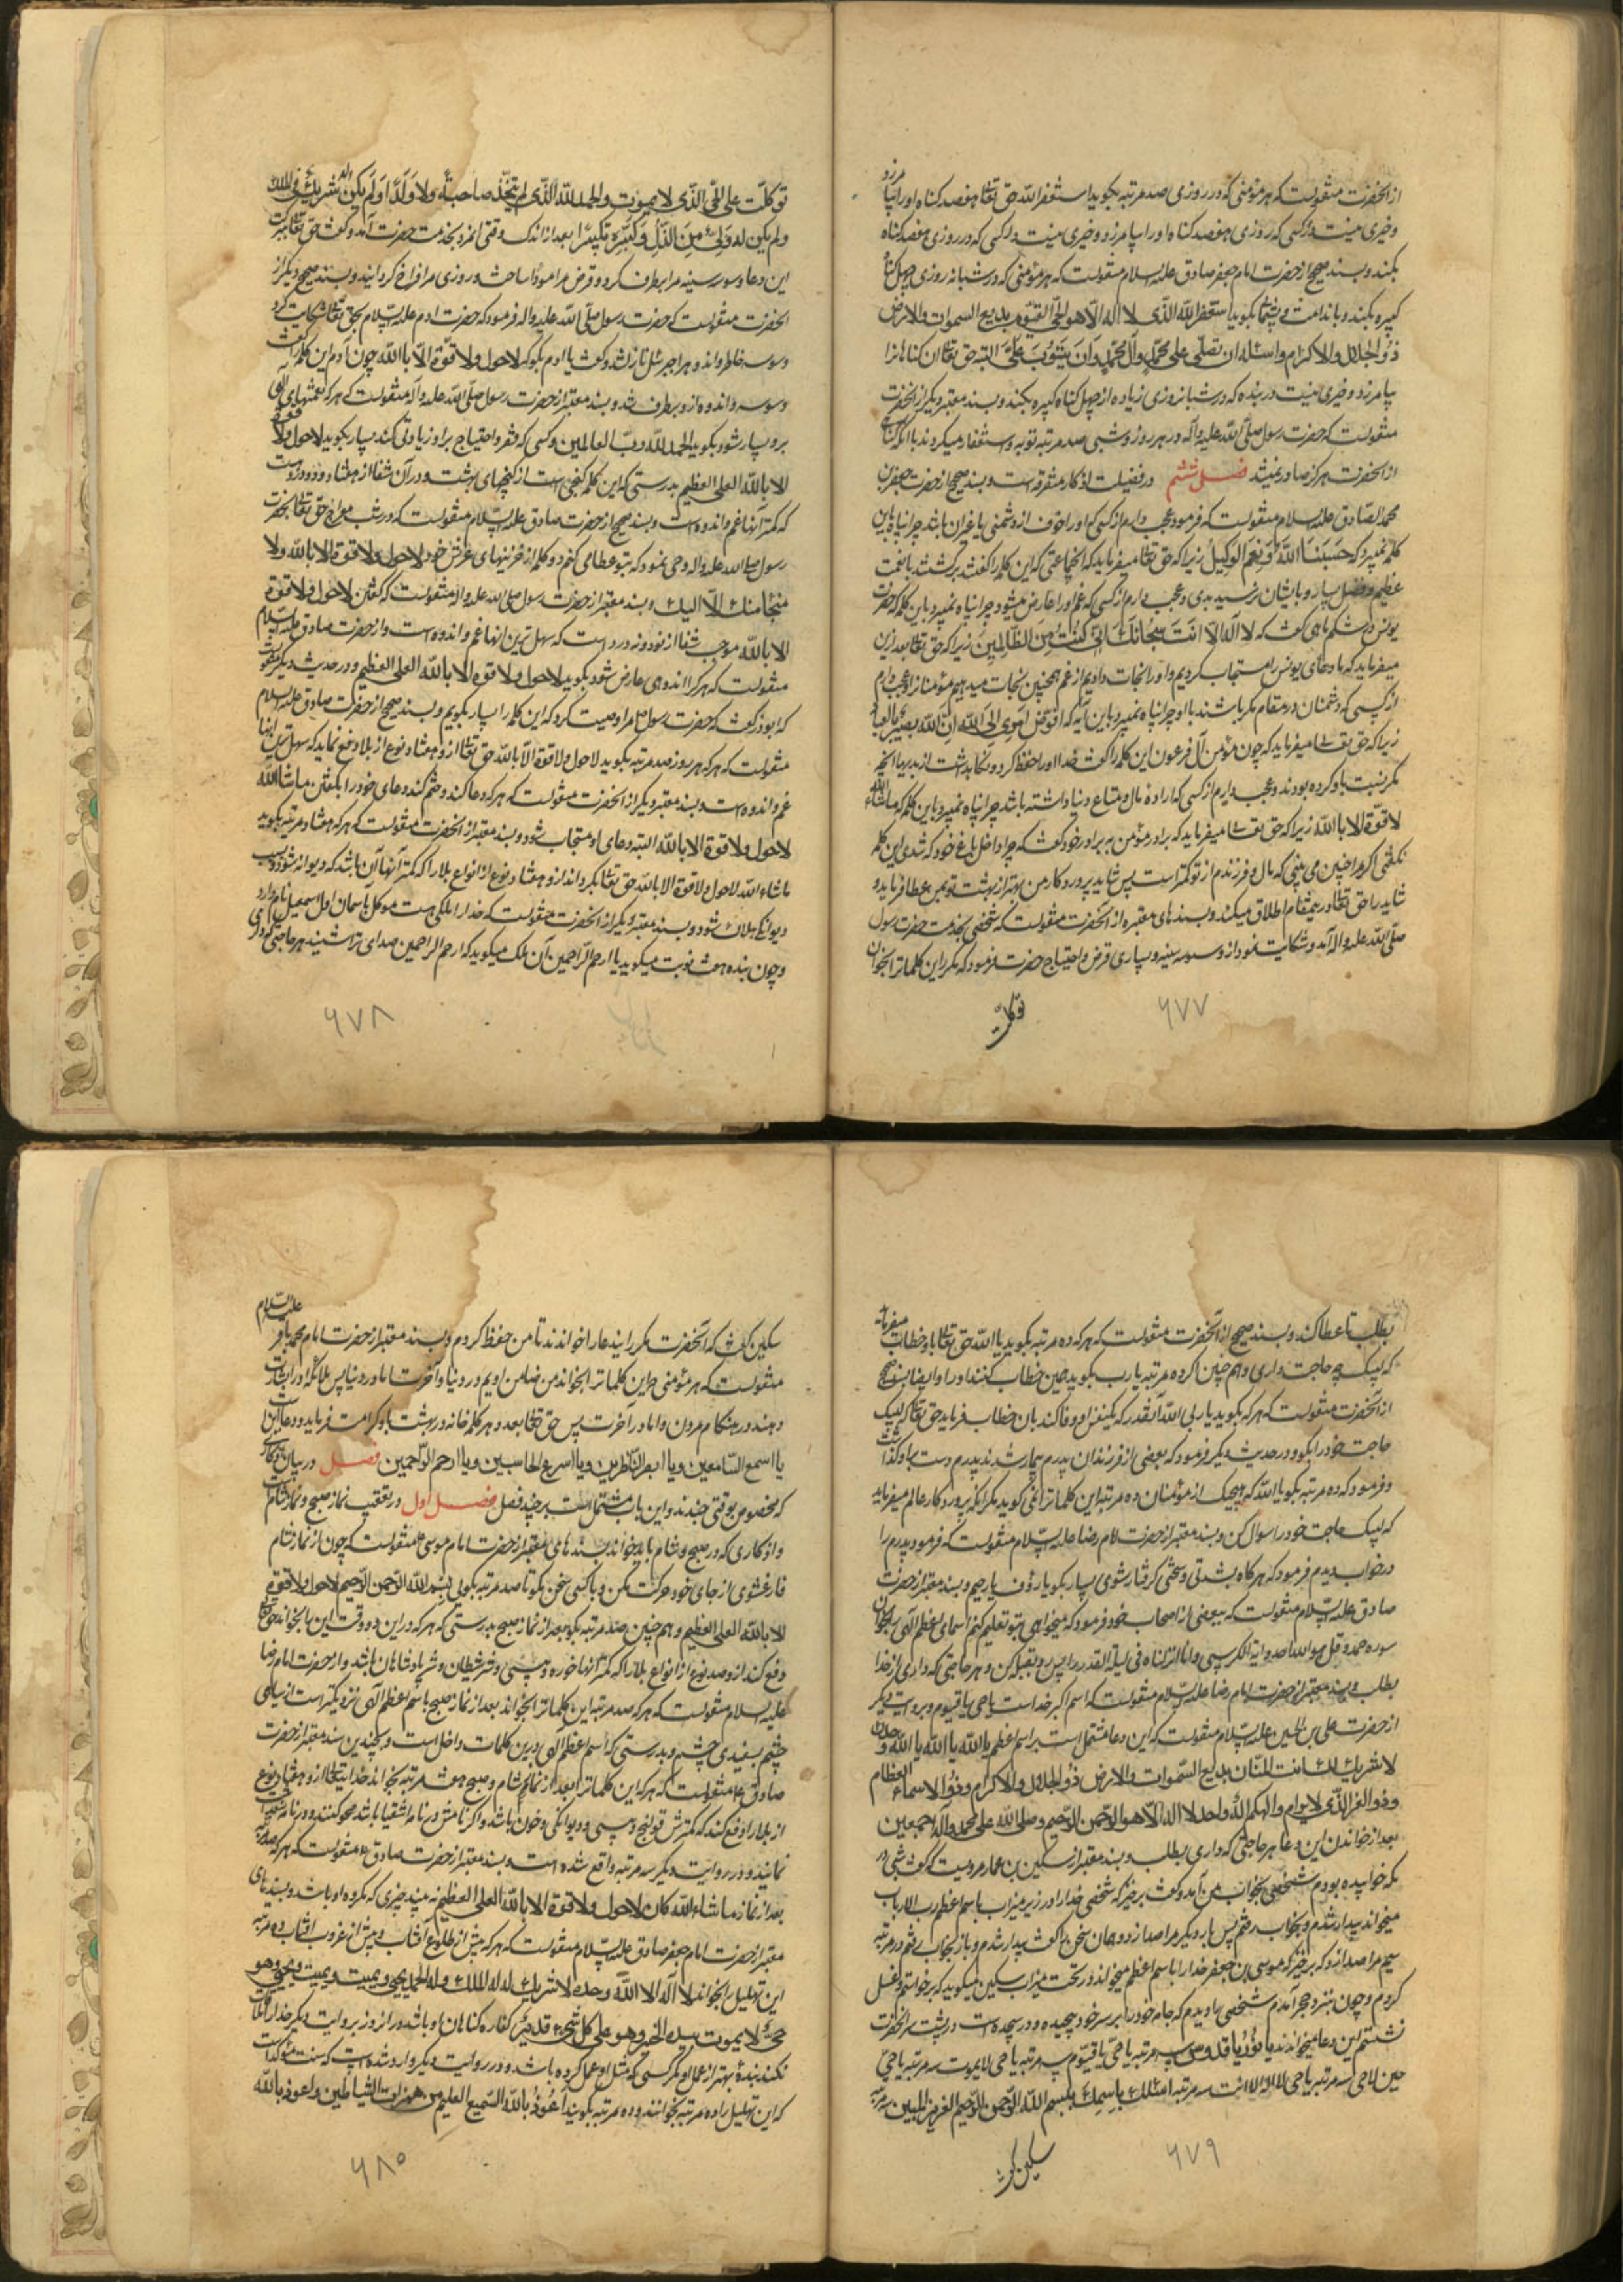 از انحضرت منقولست که هر مؤمنی که در روزی صد مرتبه بکوید استغفر الله حق تعالی هفصد کناه اورا بیامرزد
و خیری نیست در کسی که روزی هفصد کناه اورا بیامرزد و خیری نیست در کسی که در روزی هفصد کناه
بکند و بسند صحیح از حضرت امام جعفر صادق علیه السلام منقولست که هر مؤمنی که در شبانه روزی چهل کناه
کبیره بکند و با ندامت و پشیمانی بکوید استغفر الله الذی لا اله الا هو الحی القیوم بدیع السموات والارض
ذو الجلال والاکرام واسئله ان تصلی علی محمد وآل محمد وان یتوب علی البته حق تعالی ان کناهانرا
بیامرزد و خیری نیست در بنده که در شبانروزی زیاده از چهل کناه کبیره بکند و بسند معتبر دیکر از انحضرت
منقولست که حضرت رسول صلی الله علیه وآله در هر روز و شبی صد مرتبه توبه و استغفار میکردند با انکه کناهی
از انحضرت هرکز صادر نمیشد فصل ششم در فضیلت اذکار متفرقه است و بسند صحیح از حضرت جعفر بن
محمد الصادق علیه السلام منقولست که فرمود عجب دارم از کسی که اورا خوف از دشمنی یا غیر آن باشد چرا پناه باین
کلمه نمیبرد که حسبنا الله ونعم الوکیل زیرا که حق تعالی میفرماید که انجماعتی که این کلمه را کفتند برکشتند با نعمت
عظیم و فضل بسیار و بایشان نرسید بدی و عجب دارم از کسی که غم اورا عارض میشود چرا پناه نمیبرد باین کلمه که حضرت
یونس در شکم ماهی کفت که لا اله الا انت سبحانک انی کنت من الظالمین زیرا که حق تعالی بعد ازین
میفرماید که ما دعای یونس را مستجاب کردیم و اورا نجات دادیم از غم و همچنین نجات میدهیم مؤمنانرا و عجب دارم
از کسی که دشمنان در مقام مکر باشند با او چرا پناه نمیبرد باین آیه که افوض امری الی الله ان الله بصیر بالعباد
زیرا که حق تعالی میفرماید که چون مؤمن آل فرعون این کلمه را کفت خدا اورا حفظ کرد و نکاهداشت از بدیهای انچه
مکر نسبت باو کرده بودند و عجب دارم از کسی که اراده مال و متاع دنیا داشته باشد چرا پناه نمیبرد باین کلمه که ماشاء الله
لا قوة الا بالله زیرا که حق تعالی میفرماید که برادر مؤمن به برادر خود کفت که چرا داخل باغ خود که شدی این کلمه
نکفتی اکر مرا چنین می بینی که مال و فرزندم از تو کمتر است پس شاید پروردکار من بهتر از بهشت تو بمن عطا فرماید و
شاید را حق تعالی در ینمقام اطلاق میکند و بسندهای معتبره از انحضرت منقولست که شخصی بخدمت حضرت رسول
صلی الله علیه واله آمد و شکایت نمود از وسوسه سینه و بسیاری قرض و احتیاج حضرت فرمود که مکرر این کلماترا بخوان
توکلت
۶۷۷
توکلت علی الحی الذی لا یموت والحمد لله الذی لم یتخذ صاحبة ولا ولدا ولم یکن له شریک فی الملک
ولم یکن له ولی من الذل وکبره تکبیرا بعد از اندک وقتی انمرد بخدمت حضرت آمد و کفت حق تعالی ببرکت
این دعا وسوسه سینه مرا برطرف کرد و قرض مرا مودا ساخت و روزی مرا فراخ کردانید و بسند صحیح دیکر از
انحضرت منقولست که حضرت رسول صلی الله علیه واله فرمود که حضرت ادم علیه السلام بحق تعالی شکایت کرد
وسوسه خاطر و اندوه را جبرئیل نازل شد و کفت یا ادم بکو که لا حول ولا قوة الا بالله چون آدم این کلمه را کفت
وسوسه و اندوه از و برطرف شد و بسند معتبر از حضرت رسول صلی الله علیه وآله منقولست که هر که نعمتهای الهی
برو بسیار شود بکوید الحمد لله رب العالمین و کسی که فقر و احتیاج بر او زیادتی کند بسیار بکوید لا حول ولا قوة
الا بالله العلی العظیم بدرستی که این کلمه کنجی است از کنجهای بهشت و در آن شفا از هفتاد و دو درد است
که کمتر آنها غم و اندوه است و بسند صحیح از حضرت صادق علیه السلام منقولست که در شب معراج حق تعالی بحضرت
رسول صلی الله علیه واله وحی نمود که بتو عطا می کنم دو کلمه از خزینهای عرش خود لا حول ولا قوة الا بالله ولا
منجا منک الا الیک و بسند معتبر از حضرت رسول صلی الله علیه واله منقولست که کفتن لا حول ولا قوة
الا بالله موجب شفا از نود و نه درد است که سهل ترین انها غم و اندوه است و از حضرت صادق علیه السلام
منقولست که هر کرا اندوهی عارض شود بکوید لا حول ولا قوة الا بالله العلی العظیم و در حدیث دیکر منقولست
که ابوذر کفت که حضرت رسول ص مرا وصیت کرد که این کلمه را بسیار بکویم و بسند صحیح از حضرت صادق علیه السلام
منقولست که هر که هر روز صد مرتبه بکوید لا حول ولا قوة الا بالله حق تعالی از و هفتاد نوع از بلا دفع نماید که سهل ترین انها
غم و اندوه است و بسند معتبر دیکر از انحضرت منقولست که هر که دعا کند و ختم کند دعای خود را بکفتن ماشاء الله
لا حول ولا قوة الا بالله البته دعای او مستجاب شود و بسند معتبر از انحضرت منقولست که هر که هفتاد مرتبه بکوید
ماشاء الله لا حول ولا قوة الا بالله حق تعالی بکرداند از و هفتاد نوع از انواع بلا را که کمتر آنها آن باشد که دیوانه شود و بسبب
دیوانکی هلاک شود و بسند معتبر دیکر از انحضرت منقولست که خدارا ملکی هست موکل بآسمان اول اسمعیل نام دارد
و چون بنده هفت نوبت میکوید یا ارحم الراحمین آن ملک میکوید که ارحم الراحمین صدای ترا شنید هر حاجتی که داری
۶۷۸
بطلب تا عطا کند و بسند صحیح از انحضرت منقولست که هر که ده مرتبه بکوید یا الله حق تعالی باو خطاب میفرماید
که لبیک چه حاجت داری و هم چنین اکر ده مرتبه یا رب بکوید همین خطاب کنند اورا و ایضا بسند صحیح
از انحضرت منقولست که هر که بکوید یا ربی الله آنقدر که یکنفس او وفا کند بان خطاب فرماید حق تعالی که لبیک
حاجت خود را بکو و در حدیث دیکر فرمود که بعضی از فرزندان پدرم بیمار شدند پدرم دست باو کذاشت
و فرمود که ده مرتبه بکو یا الله که هیچیک از مؤمنان ده مرتبه این کلماترا نمی کوید مکر انکه پروردکار عالم میفرماید
که لبیک حاجت خود را سوال کن و بسند معتبر از حضرت امام رضا علیه السلام منقولست که فرمود پدرم را
در خواب دیدم فرمود که هر کاه بشدتی و سختی کرفتار شوی بسیار بکو یا رؤف یا رحیم و بسند معتبر از حضرت
صادق علیه السلام منقولست که ببعضی از اصحاب خود فرمود که میخواهی بتو تعلیم کنم اسمای اعظم الهی بخوان
سوره حمد و قل هو الله احد و ایة الکرسی و انا انزلناه فی لیلة القدر را پس رو بقبله کن و هر حاجتی که داری از خدا
بطلب و بسند معتبر از حضرت امام رضا علیه السلام منقولست که اسم اکبر خدا است یا حی یا قیوم و بروایت دیکر
از حضرت علی بن الحسین علیه السلام منقولست که این دعا مشتمل است بر اسم اعظم یا الله یا الله یا الله وحدک
لا شریک لک انت المنان بدیع السموات والارض ذو الجلال والاکرام وذو الاسماء العظام
وذو العز الذی لا یرام والهکم اله واحد لا اله الا هو الرحمن الرحیم وصلی الله علی محمد وآله اجمعین
بعد از خواندن این دعا هر حاجتی که داری بطلب و بسند معتبر از سکین بن عمار مرویست که کفت شبی در
مکه خوابیده بودم شخصی بخواب من آمد و کفت برخیز که شخصی خدارا در زیر میزاب باسم اعظم رب الارباب
میخواند بیدار شدم و بخواب رفتم پس بار دیکر مرا صدا زد و همان سخن را کفت بیدار شدم و باز بخواب رفتم در مرتبه
سیم مرا صدا زد که برخیز که موسی بن جعفر خدارا باسم اعظم میخواند در تحت میزاب سکین میکوید که برخواستم و غسل
کردم و چون بنزد حجر آمدم شخصی را دیدم که جامه خود را بر سر خود پیچیده و در سجده است در پشت سر انحضرت
نشستم این دعا میخواندند یا نور یا قدوس سه مرتبه یا حی یا قیوم سه مرتبه یا حی لا یموت سه مرتبه یا حی
حین لا حی سه مرتبه یا حی لا اله الا انت سه مرتبه اسئلک باسمک بسم الله الرحمن الرحیم العزیز المبین سه مرتبه
سکین کفت
۶۷۹
سکین کفت که انحضرت مکرر ایندعارا خواندند تا من حفظ کردم و بسند معتبر از حضرت امام محمد باقر علیه السلام
منقولست که هر مؤمنی که این کلماترا بخواند من ضامن اویم در دنیا و آخرت اما در دنیا پس ملائکه اورا بشارت
دهند در هنکام مردن و اما در آخرت پس حق تعالی بعدد هر کلمه خانه در بهشت باو کرامت فرماید و دعا این است
یا اسمع السامعین ویا ابصر الناظرین ویا اسرع الحاسبین ویا ارحم الراحمین فصل در بیان اذکاری
که مخصوص بوقتی چندند و این باب مشتمل است بر چند فصل فصل اول در تعقیب نماز صبح و نماز شام
و اذکاری که در صبح و شام باید خواند بسندهای معتبر از حضرت امام موسی ع منقولست که چون از نماز شام
فارغ شوی از جای خود حرکت مکن و با کسی سخن مکو تا صد مرتبه بکوئی بسم الله الرحمن الرحیم لا حول ولا قوة
الا بالله العلی العظیم و هم چنین صد مرتبه بکو بعد از نماز صبح بدرستی که هر که در این دو وقت این را بخواند حق تعالی
دفع کند از و صد نوع از انواع بلا را که کمتر انها خوره و پیسی و شر شیطان و شر پادشاهان باشد و از حضرت امام رضا
علیه السلام منقولست که هر که صد مرتبه این کلماترا بخواند بعد از نماز صبح باسم اعظم الهی نزدیکتر است از سیاهی
چشم بسفیدی چشم و بدرستی که اسم اعظم الهی درین کلمات داخل است و بچندین سند معتبر از حضرت
صادق ع منقولست که هر که این کلماترا بعد از نماز شام و صبح هفت مرتبه بخواند خدایتعالی از و هفتاد نوع
از بلا را دفع کند که کمترش قولنج و پیسی و دیوانکی و خون باشد و اکر نامش در نامه اشقیا باشد محو کنند و در نامه سعدا ثبت
نمایند و در روایت دیکر سه مرتبه واقع شده است و بسند معتبر از حضرت صادق ع منقولست که هر که صد مرتبه
بعد از نماز ماشاء الله کان لا حول ولا قوة الا بالله العلی العظیم نه بیند چیزی که مکروه او باشد و بسندهای
معتبر از حضرت امام جعفر صادق علیه السلام منقولست که هر که پیش از طلوع آفتاب و پیش از غروب افتاب ده مرتبه
این تهلیل بخواند لا اله الا الله وحده لا شریک له له الملک وله الحمد یحیی ویمیت ویمیت ویحیی وهو
حی لا یموت بیده الخیر وهو علی کل شیء قدیر کفاره کناهان او باشد در انروز بروایت دیکر خدارا ملاقات
نکند بندۀ بهتر از عمل او مکر کسی که مثل او عمل کرده باشد و در روایت دیکر وارد شده است که سنت مؤکد است
که این تهلیل را ده مرتبه بخوانند و ده مرتبه بکویند اعوذ بالله السمیع العلیم من همزات الشیاطین واعوذ بالله
۶۸۰